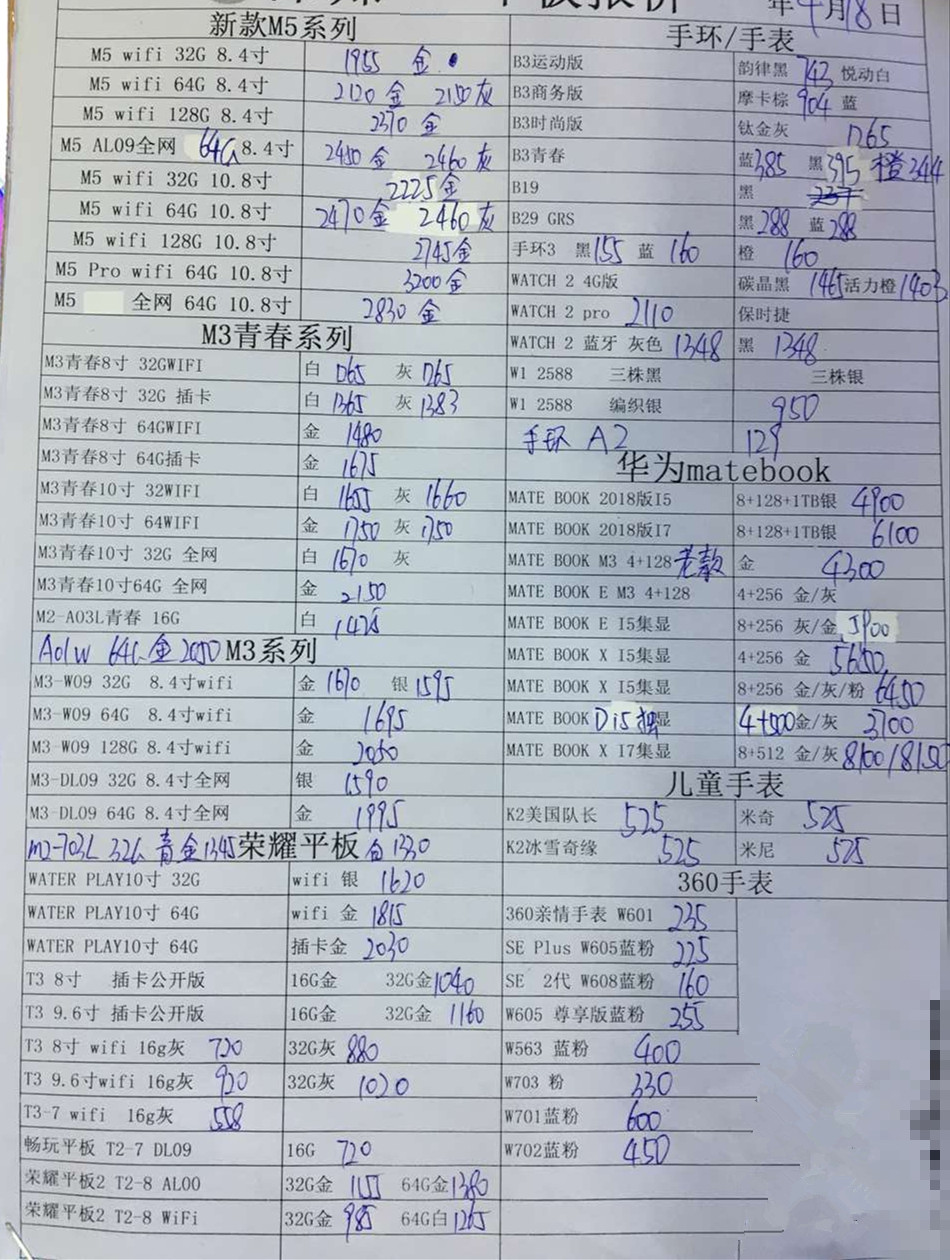 年4月18日
新款M5系列
M5 wifi 32G 8.4寸 1955 金
M5 wifi 64G 8.4寸 2120 金 2150 灰
M5 wifi 128G 8.4寸 2370 金
M5 AL09全网 64G 8.4寸 2450 金 2460 灰
M5 wifi 32G 10.8寸 2225 金
M5 wifi 64G 10.8寸 2470 金 2460 灰
M5 wifi 128G 10.8寸 2745 金
M5 Pro wifi 64G 10.8寸 3200 金
M5 全网 64G 10.8寸 2830 金
M3青春系列
M3青春8寸 32GWIFI 白 灰
M3青春8寸 32G 插卡 白 1365 灰 1383
M3青春8寸 64GWIFI 金 1480
M3青春8寸 64G插卡 金 1675
M3青春10寸 32WIFI 白 1655 灰 1660
M3青春10寸 64WIFI 金 1750 灰 1750
M3青春10寸 32G 全网 白 1670 灰
M3青春10寸64G 全网 金 2150
M2-A03L青春 16G 白 1475
64G 金 2050 M3系列
M3-W09 32G 8.4寸wifi 金 1610 银 1595
M3-W09 64G 8.4寸wifi 金 1695
M3-W09 128G 8.4寸wifi 金 2050
M3-DL09 32G 8.4寸全网 银 1590
M3-DL09 64G 8.4寸全网 金 1995
M2-703L 32G 青 金1345 荣耀平板 白 1330
WATER PLAY10寸 32G wifi 银 1620
WATER PLAY10寸 64G wifi 金 1815
WATER PLAY10寸 64G 插卡金 2030
T3 8寸 插卡公开版 16G金 32G金 1040
T3 9.6寸 插卡公开版 16G金 32G金 1160
T3 8寸 wifi 16g灰 720 32G灰 880
T3 9.6寸wifi 16g灰 920 32G灰 1020
T3-7 wifi 16g灰 558
畅玩平板 T2-7 DL09 16G 720
荣耀平板2 T2-8 AL00 32G金 1155 64G金 1380
荣耀平板2 T2-8 WiFi 32G金 985 64G白 1265
手环/手表
B3运动版 韵律黑 743 悦动白
B3商务版 摩卡棕 904 蓝
B3时尚版 钛金灰 1265
B3青春 蓝 385 黑 395 橙 344
B19 黑 237
B29 GRS 黑 288 蓝 288
手环3 黑 155 蓝 160 橙 160
WATCH 2 4G版 碳晶黑 1465 活力橙 1403
WATCH 2 pro 2110 保时捷
WATCH 2 蓝牙 灰色 1348 黑 1348
W1 2588 三株黑 三株银
W1 2588 编织银 950
手环 A2 129
华为matebook
MATE BOOK 2018版I5 8+128+1TB银 4900
MATE BOOK 2018版I7 8+128+1TB银 6100
MATE BOOK M3 4+128 老款 金 4300
MATE BOOK E M3 4+128 4+256 金/灰
MATE BOOK E I5集显 8+256 灰/金 5900
MATE BOOK X I5集显 4+256 金 5650
MATE BOOK X I5集显 8+256 金/灰/粉 6450
MATE BOOK D i5 独显 4+500 金/灰 3700
MATE BOOK X I7集显 8+512 金/灰 8100/8150
儿童手表
K2美国队长 525 米奇 525
K2冰雪奇缘 525 米尼 525
360手表
360亲情手表 W601 235
SE Plus W605蓝粉 225
SE 2代 W608蓝粉 160
W605 尊享版蓝粉 255
W563 蓝粉 400
W703 粉 330
W701蓝粉 600
W702蓝粉 450